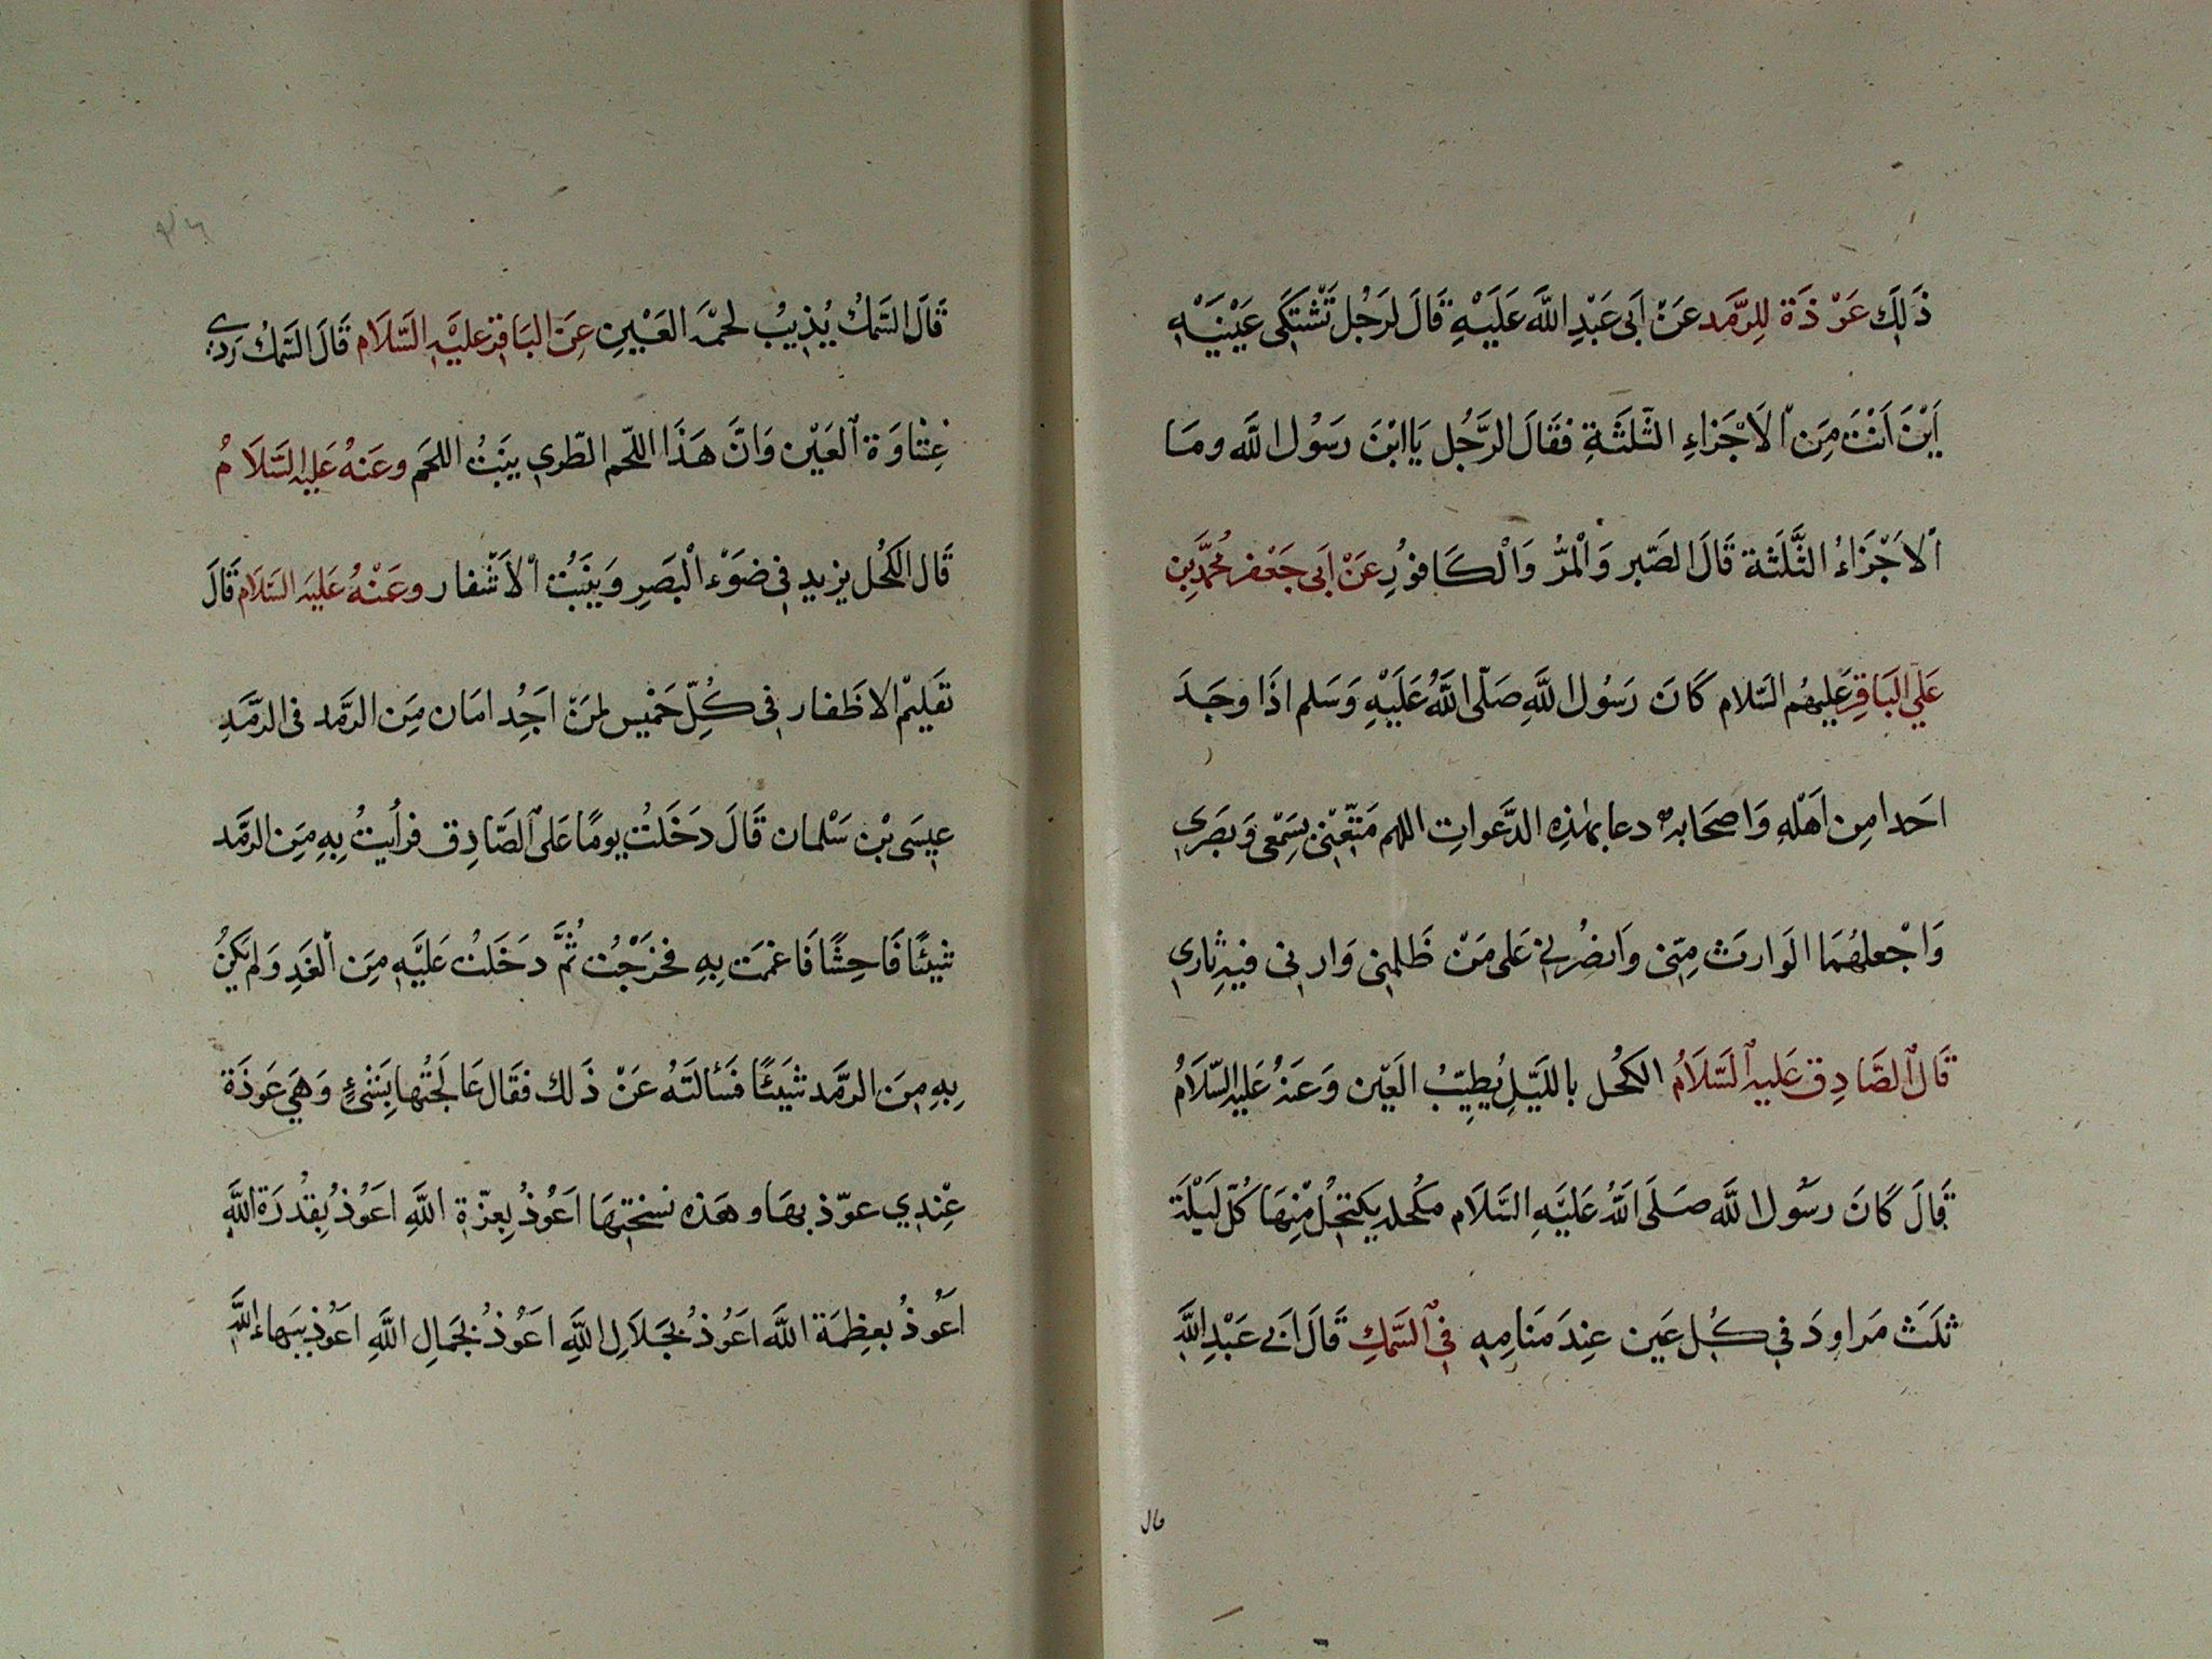 ذَلِكَ عَوْذَة لِلرَّمَد عَنْ اَبى عَبْدِ اللَّه عَلَيْهِ قَالَ لرَجُل تَشْتَكَى عَيْنَيْهِ
اَيْنَ اَنْتَ مِنَ الاَجْزَاءِ الثَّلثَةِ فقَالَ الرَّجُل يَا ابْنَ رسَوُل اللَّه ومَا
الاَجْزَاءُ الثَّلَثة قَالَ الصَّبر وَالْمرُّ وَالْكَافوُرِ عَنْ اَبى جَعْفر مُحَمَّدِ بن
عَلي البَاقِر عَليهُم السَّلام كَانَ رَسُول اللَّهِ صَلّى اللَّهُ عَلَيْهِ وَسَلم اذَا وجَدَ
احَدا مِن اَهْلهِ وَاصحَابه دعا بهٰذِهِ الدَّعواتِ اللهم مَتِّعْنى بِسَمْعى وَبصَرى
وَاجْعلهُمَا الوَارثَ مِنّى وَانصُرْنى عَلى مَنْ ظَلمنى وَارنى فيهِ ثارى
قَالَ الصَّادِق عَليه السَّلاَمُ الكحُل بالليَّلِ يُطِيّبُ العَيْن وَعَنهُ عَليه السَّلاَمُ
قَالَ كَانَ رسَوُل اللَّه صَلَى اللَّهُ عَليَهِ السَّلاَم مكُحله يكتحِلُ مْنِهَا كُلّ لَيْلَة
ثلَثَ مَراودَ فى كُل عَين عِندَ مَنامِهِ فِى السَّمَكِ قَالَ ابَى عَبْدِ اللَّهِ
قال
قَالَ السَّمَكُ يُذيبُ لحمْهَ العَيْنِ عَنِ البَاقِر عليَهِ السَّلَام قَالَ السَّمَكُ رَدى
غِشَاوَة العَيْن وَانَّ هَذَا اللّحم الطّرى يبَنُتُ اللحَم وعَنهُ عَليه السَّلَامُ
قَال الكحُل يزيد فى ضَوْء الْبَصَرِ وَينَبتُ الْاَشفار وعَنْهُ عَليَه السَّلَام قَالَ
تقَليمْ الاظَفار فى كُلِّ خمْيس لمَنْ اجِدُ امَان مِنَ الرَّمد فى الرَّمَدِ
عيسَى بْن سَلْمان قَالَ دخَلتُ يومًا عَلى الصَّادِق فرأيتُ بِهِ مِنَ الرَّمد
شيئًا فَاحِشًا فَاغمَت بِهِ فخَرَجْت ثُمَّ دخَلتُ عَليَهِ مِنَ الْغَدِ وَلم يَكنُ
بِهِ مِنَ الرَّمد شَيَئًا فسَألتَهُ عَنْ ذَلك فقَال عَالجَتُها بِشَىْءٍ وَهِىَ عَوذَة
عْنِدى عوّذ بهَا وهَذه نسختهَا اَعُوُذُ بِعزّة اللَّهِ اَعوُذُ بِقُدرَة اللَّهِ
اَعُوذُ بعِظمَة اللَّه اعَوُذ بجَلاَل اللَّهِ اعَوُذ بجَمالِ اللَّهِ اعَوُذ بِبَهاء اللَّهِ